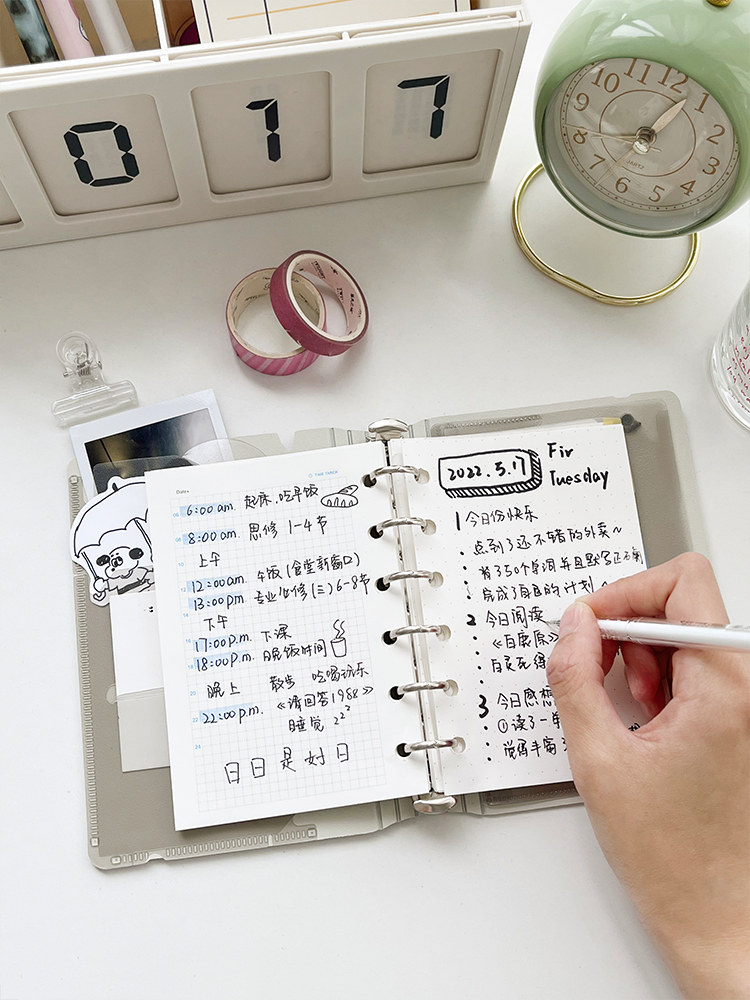 0 1 7
10 11 12 1
9 2
8 3
7 6 5 4
QUARTZ
Date•
TIME TABLE
6:00 am. 起床、吃早饭
8:00 am. 思修 1-4节
上午
12:00am. 午饭(食堂新窗口)
13:00pm. 专业必修(三)6-8节
下午
17:00p.m. 下课
18:00p.m. 晚饭时间
晚上 散步 吃喝玩乐
《请回答1988》
22:00p.m. 睡觉 zzz
日日是好日
2022.5.17
Fir
Tuesday
1 今日份快乐
点到了还不错的外卖~
背了50个单词并且默写还不错
完成了自己的计划
2 今日阅读
《白鹿原》
白灵死
3 今日感想
①读了一
觉得